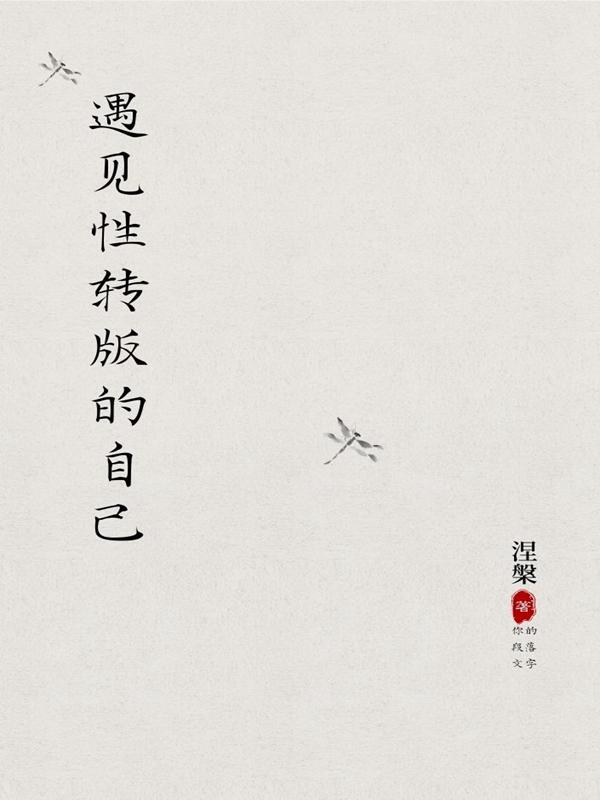 遇见性转版的自己
涅槃
著
你的
段落
文字